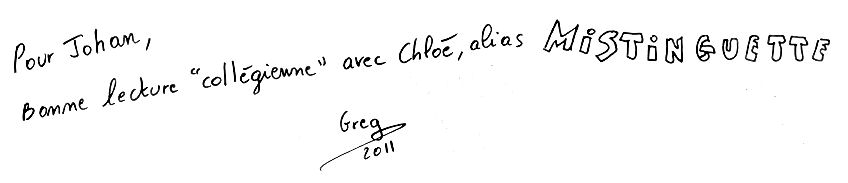 Pour Johan,
Bonne lecture "collégienne" avec Chloé, alias MiSTiNGUETTE
Greg
2011